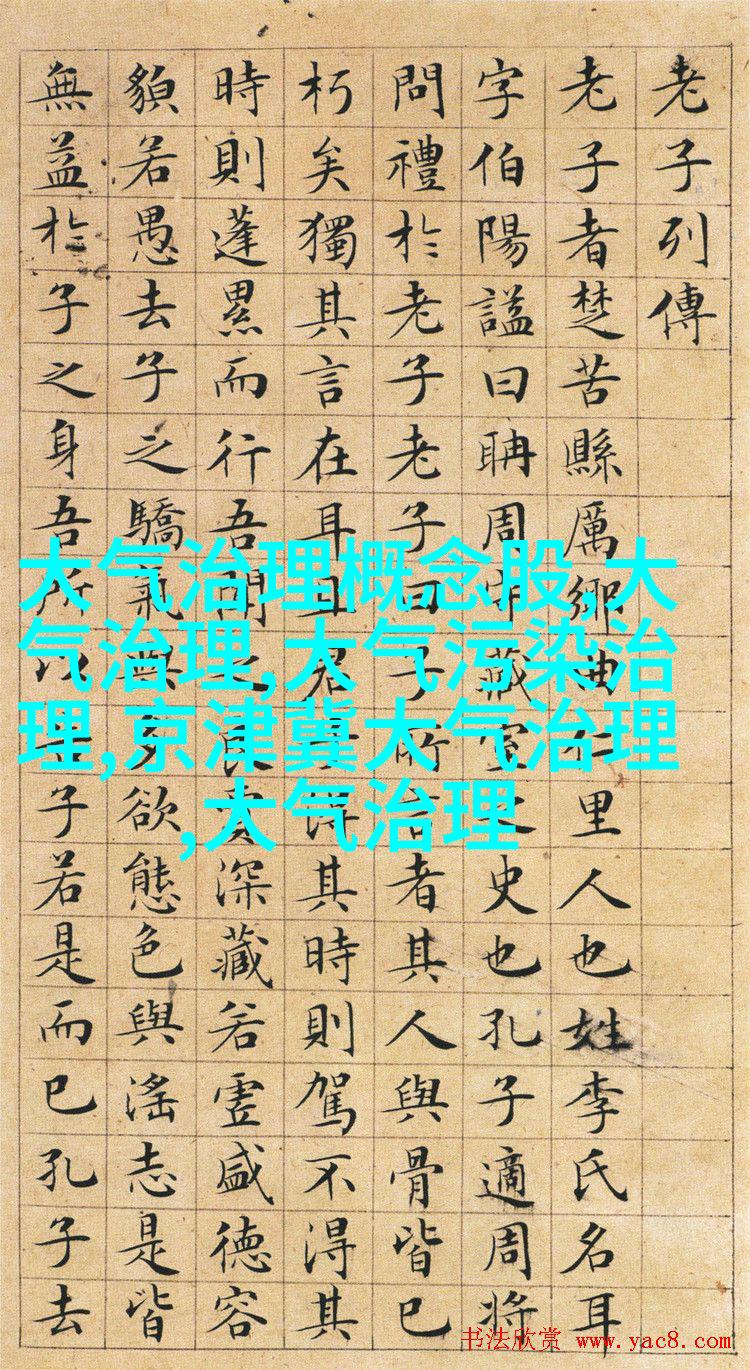 老子列傳
老子者楚苦縣厲鄉曲仁里人也姓李氏名耳
字伯陽謚曰聃周守藏室之史也孔子適周將
問禮於老子老子曰子所言者其人與骨皆已
朽矣獨其言在耳且君子得其時則駕不得其
時則蓬累而行吾聞之良賈深藏若虛盛德容
䫉若愚去子之驕氣與多欲態色與淫志是皆
無益於子之身吾所以告子若是而已孔子去
大气治理概念股,大
气治理,大气污染治
理,京津冀大气治理
,大气治理
书法欣赏 www.yac8.com